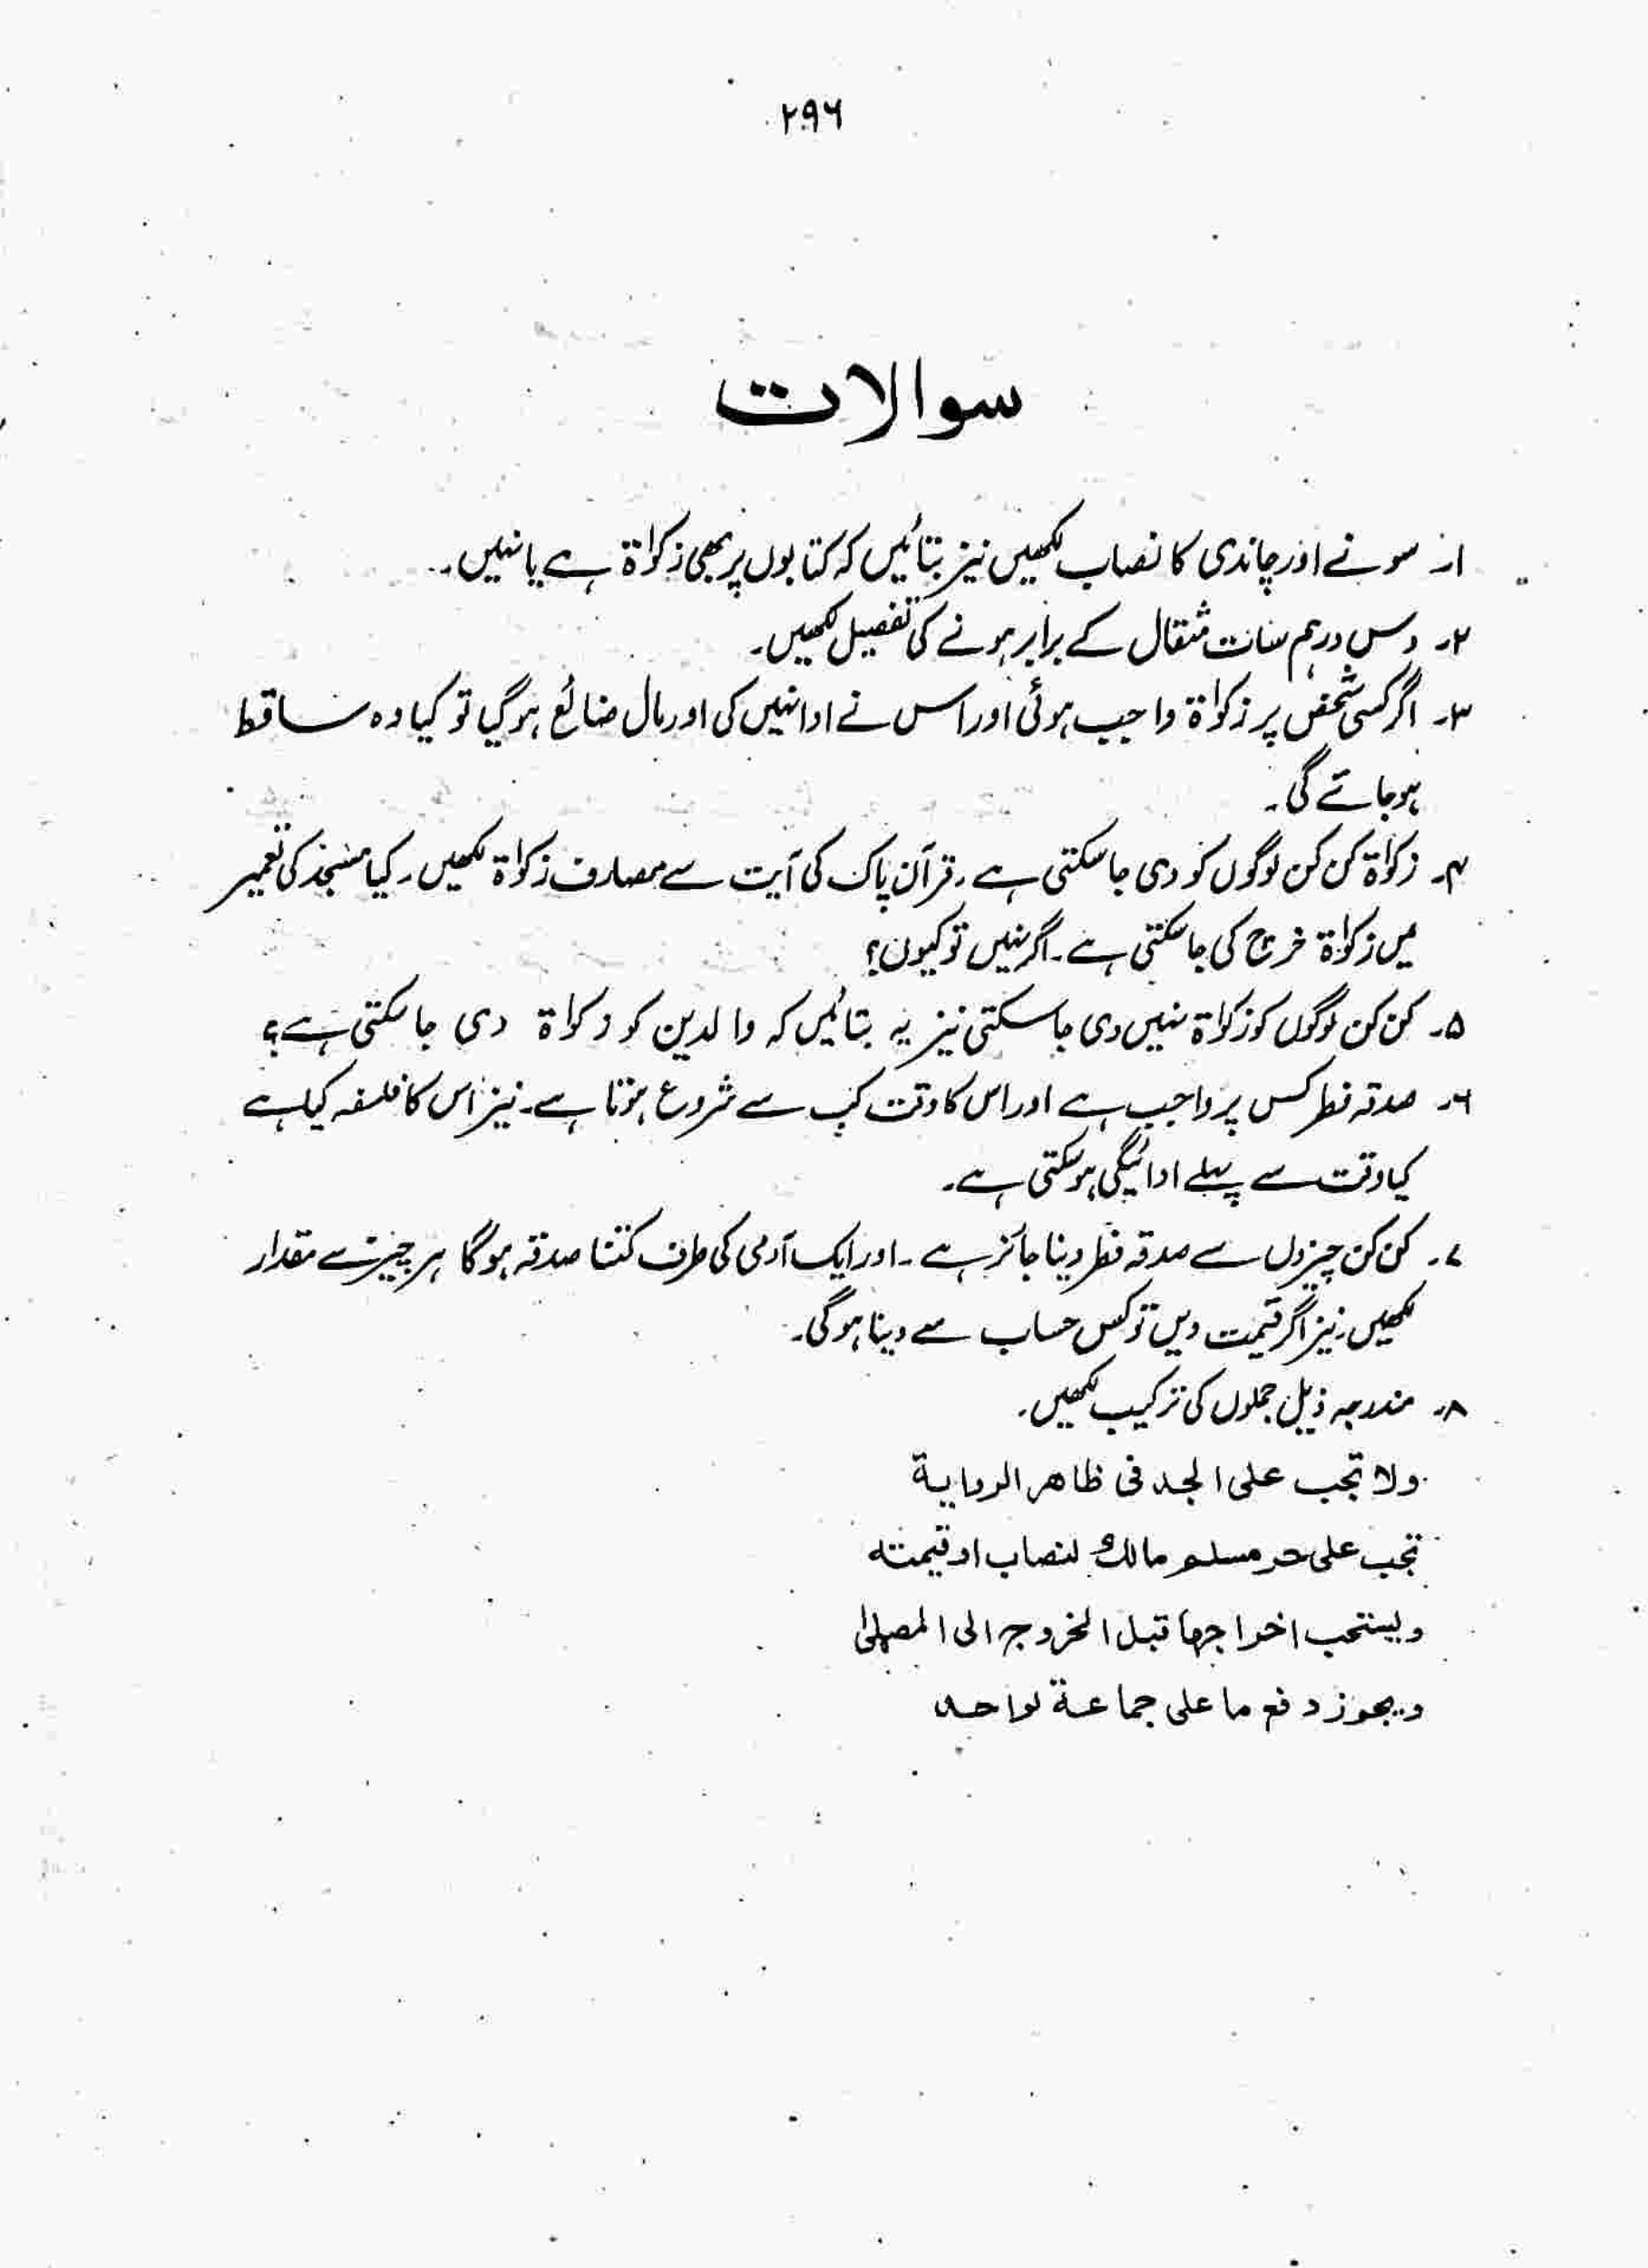 ۲۹۶
سوالات
۱۔ سونے اور چاندی کا نصاب لکھیں نیز بتائیں کہ کتابوں پر بھی زکوٰۃ ہے یا نہیں۔
۲۔ دس درہم سات مثقال کے برابر ہونے کی تفصیل لکھیں۔
۳۔ اگر کسی شخص پر زکوٰۃ واجب ہوئی اور اس نے ادا نہیں کی اور مال ضائع ہو گیا تو کیا وہ ساقط
ہو جائے گی۔
۴۔ زکوٰۃ کن کن لوگوں کو دی جا سکتی ہے۔ قرآن پاک کی آیت سے مصارف زکوٰۃ لکھیں۔ کیا مسجد کی تعمیر
میں زکوٰۃ خرچ کی جا سکتی ہے۔ اگر نہیں تو کیوں؟
۵۔ کن کن لوگوں کو زکوٰۃ نہیں دی جا سکتی نیز یہ بتائیں کہ والدین کو زکواۃ دی جا سکتی ہے؟
۶۔ صدقہ فطر کس پر واجب ہے اور اس کا وقت کب سے شروع ہوتا ہے۔ نیز اس کا فلسفہ کیا ہے
کیا وقت سے پہلے ادائیگی ہو سکتی ہے۔
۷۔ کن کن چیزوں سے صدقہ فطر دینا جائز ہے۔ اور ایک آدمی کی طرف کتنا صدقہ ہوگا ہر چیز سے مقدار
لکھیں۔ نیز اگر قیمت دیں تو کس حساب سے دینا ہوگی۔
۸۔ مندرجہ ذیل جملوں کی ترکیب لکھیں۔
ولا تجب علی الجد فی ظاهر الروایة
تجب علی حر مسلم مالك لنصاب او قیمته
ویستحب اخراجها قبل الخروج الی المصلیٰ
ویجوز دفع ما علی جماعة لواحد